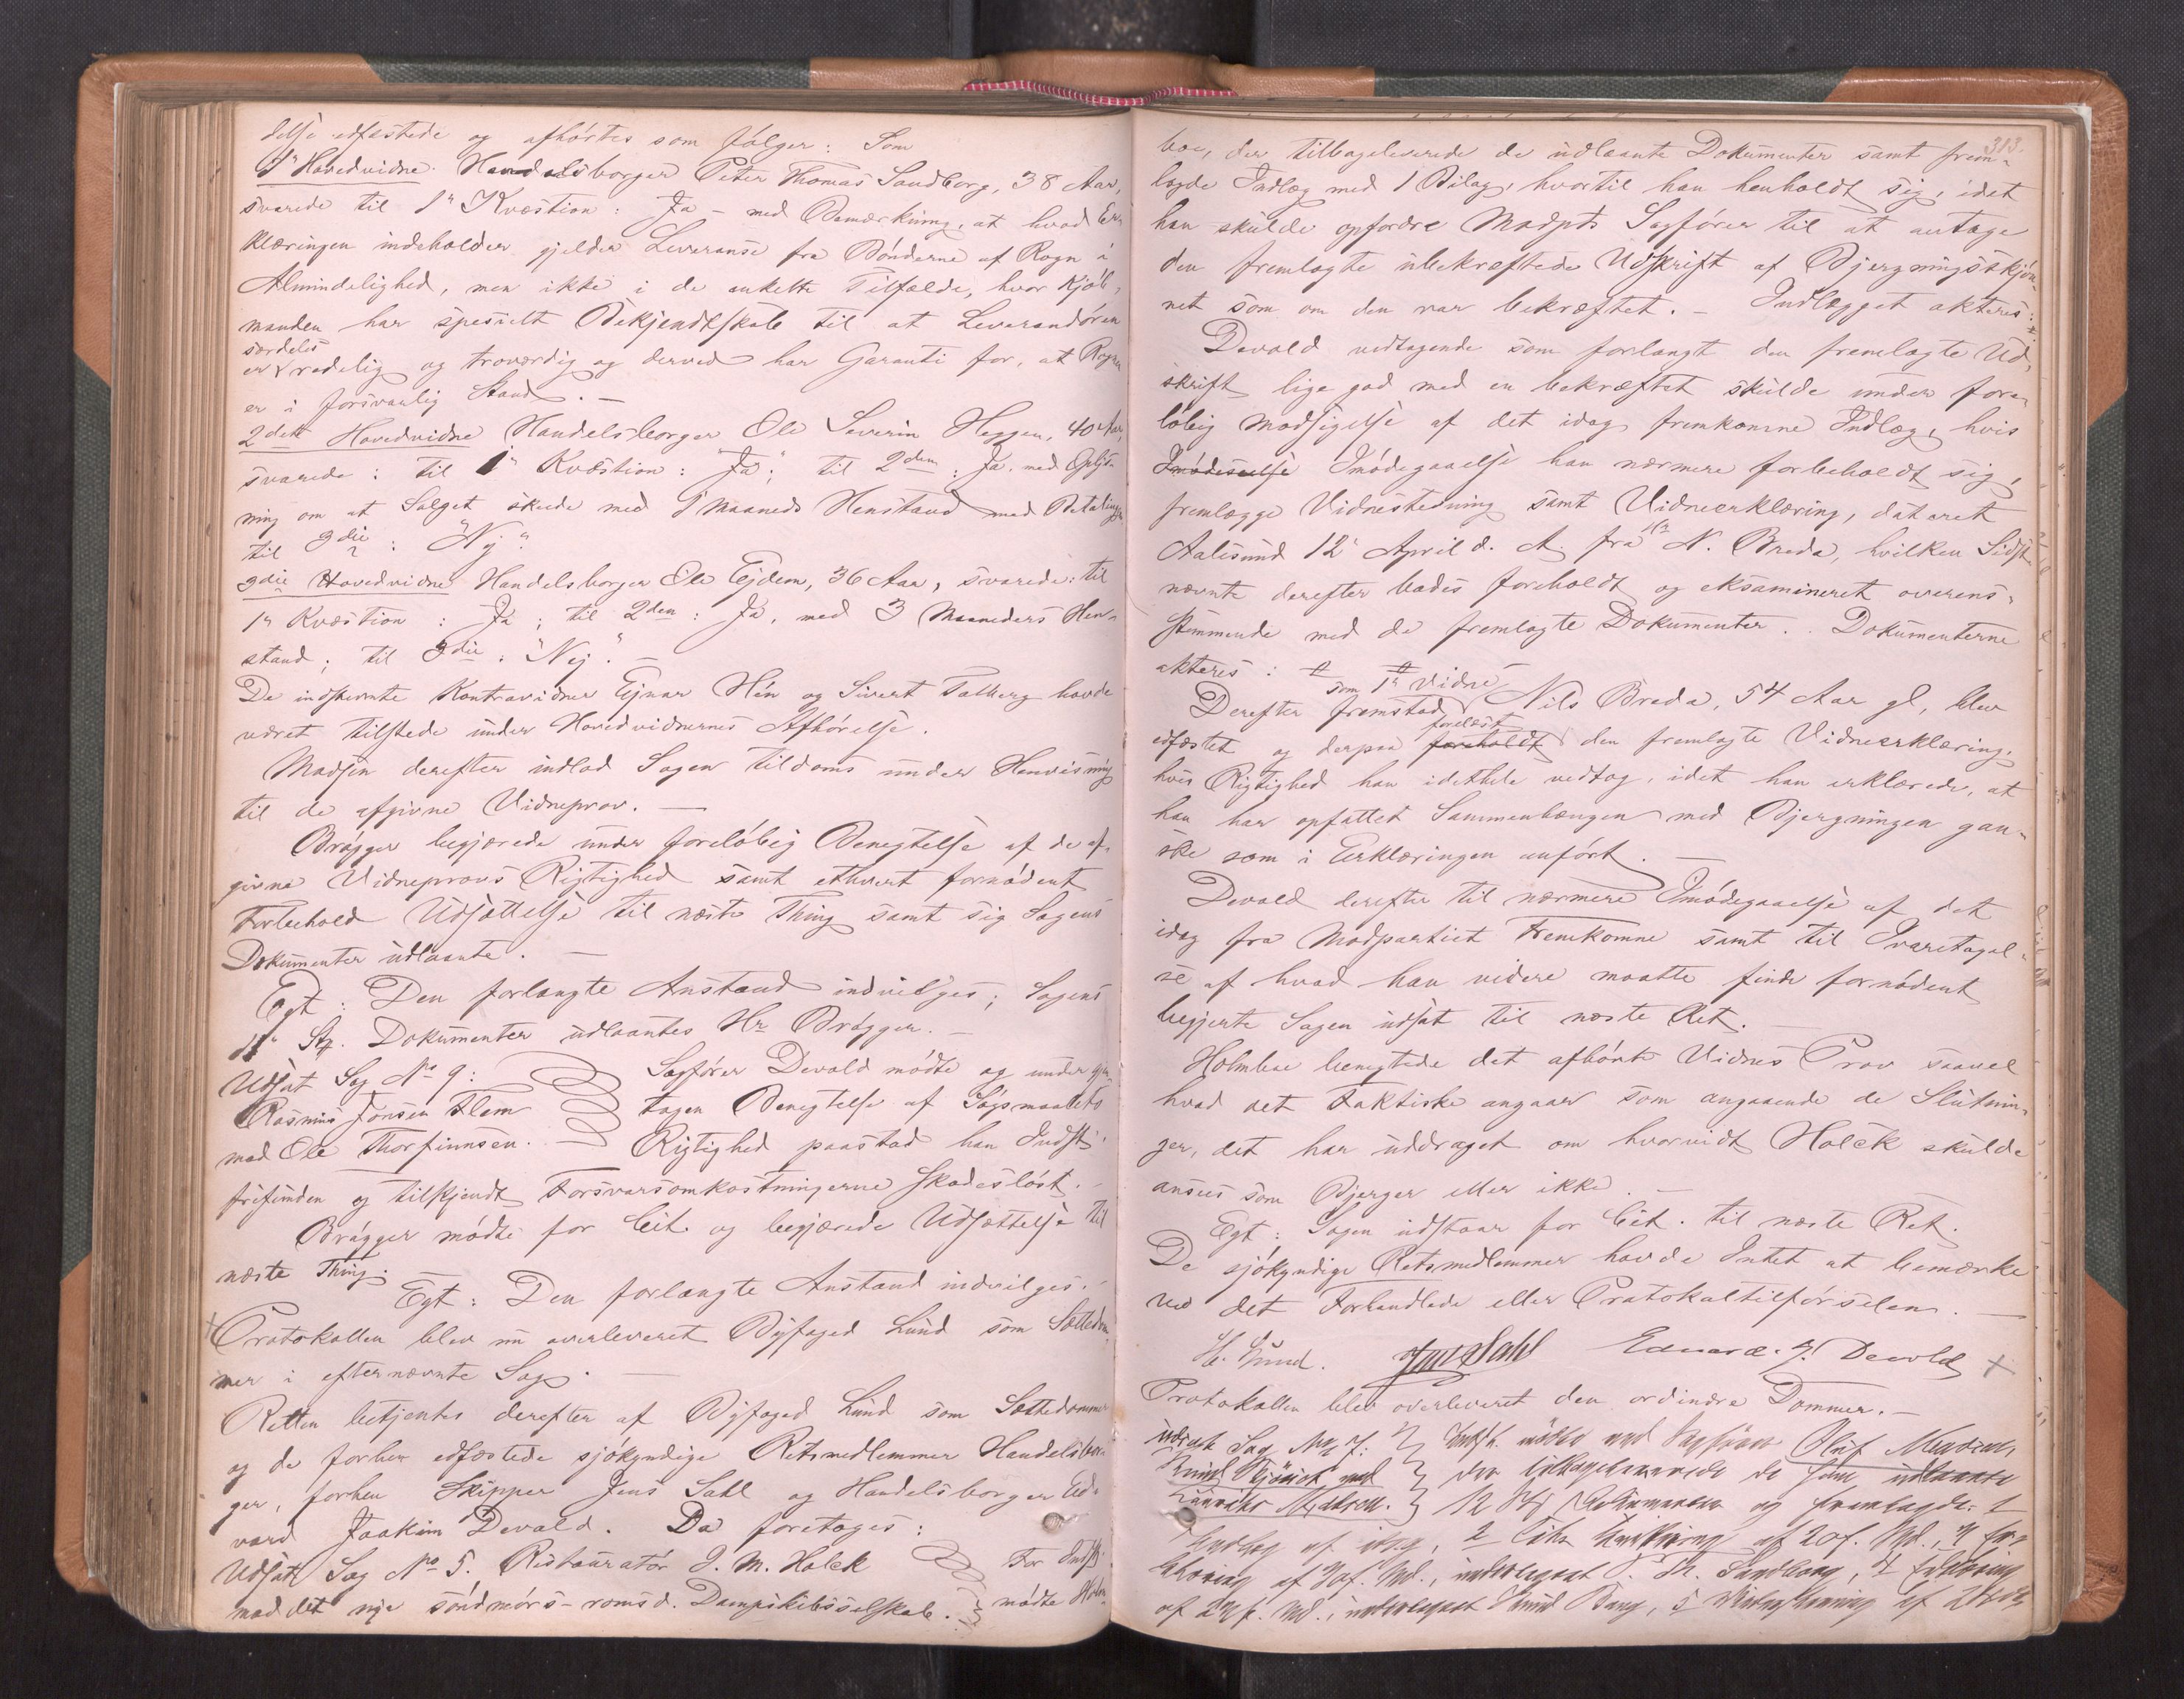 delse edfæstede og afhørtes som følger: Som
1ste Hovedvidne. Handelsborger Peter Thomas Sandborg, 38 Aar,
svarede til 1ste Kvæstion: Ja – med Bemærkning, at hvad Er-
klæringen indeholder gjelder Leveranse fra Bønderne af Rogn i
Almindelighed, men ikke i de enkelte Tilfælde, hvor Kjøb-
manden har spesielt Bekjendtskab til at Leverandøren
særdeles
er redelig og troværdig og derved har Garanti for, at Rognen
er i forsvarlig Stand. –
2det Hovedvidne Handelsborger Ole Severin Heggen, 40 Aar,
svarede: til 1ste Kvæstion: "Ja"; til 2den: Ja, med Oplys-
ning om at Salget skede med 1 Maaneds Henstand med Betalingen
til 3die: "Nej".
3die Hovedvidne Handelsborger Ole Ejdem, 36 Aar, svarede: til
1ste Kvæstion: Ja; til 2den: Ja, med 3 Maaneders Hen-
stand; til 3die: "Nej". –
De indstevnte Kontravidner Ejnar Hin og Sivert Talberg havde
været tilstede under Hovedvidnernes Afhørelse.
Madsen derefter indlod Sagen tildoms under Henvisning
til de afgivne Vidneprov. –
Brøgger begjærede under foreløbig Benegtelse af de af-
givne Vidneprovs Rigtighed samt ethvert fornødent
Forbehold Udsættelse til næste Thing samt sig Sagens
Dokumenter udlaante. –
Egt: Den forlangte Anstand indvilges; Sagens
11 Stp. Dokumenter udlaantes Hr Brøgger. –
Udsat Sag No 9: Sagfører Devold mødte og under gjen-
Rasmus Jonsen Flem tagen Benegtelse af Søgsmaalets
mod Ole Thorfinnsen. – Rigtighed paastod han Indst.
frifunden og tilkjendt Forsvarsomkostningerne skadesløst. –
Brøgger mødte for Cit. og begjærede Udsættelse til
næste Thing.
Egt: Den forlangte Anstand indvilges. –
Protokollen blev nu overleveret Byfoged Lund som Sættedom-
mer i efternævnte Sag. –
Retten betjentes derefter af Byfoged Lund som Sættedommer
og de forhen edfæstede sjøkyndige Retsmedlemmer Handelsbor-
ger, forhen Skipper Jens Dahl og Handelsborger Ed-
vard Joakim Devold. Da foretoges:
Udsat Sag No 5. Restauratør J. M. Holck For Indst.
mod det nye søndmørs-romsd. Dampskibsselskab. mødte Holm-
313.
boe, der tilbageleverede de udlaante Dokumenter samt frem-
lagde Indlæg med 1 Bilag, hvortil han henholdt sig, idet
han skulde opfordre Modpts Sagfører til at antage
den fremlagte ubekræftede Udskrift af Bjergningsskjøn-
net som om den var bekræftet. – Indlægget akteres:
Devold vedtagende som forlangt den fremlagte Ud-
skrift lige god med en bekræftet skulde under fore-
løbig Modsigelse af det idag fremkomne Indlæg, hvis
Imødegaaelse han nærmere forbeholdt sig,
fremlægge Vidnestevning samt Vidneerklæring, dateret
Aalesund 12te April d. A. fra Hr N. Breda, hvilken Sidst-
nævnte derefter bades foreholdt og eksamineret overens-
stemmende med de fremlagte Dokumenter. Dokumenterne
akteres:
som 1ste Vidne
Derefter fremstod Nils Breda, 54 Aar gl, blev
forelæst
edfæstet og derpaa foreholdt den fremlagte Vidneerklæring,
hvis Rigtighed han idethele vedtog, idet han erklærede, at
han har opfattet Sammenhængen med Bjergningen gan-
ske som i Erklæringen anført. –
Devold derefter til nærmere Imødegaaelse af det
idag fra Modpartiet Fremkomne samt til Ivaretagel-
se af hvad han videre maatte finde fornødent
begjerte Sagen udsat til næste Ret. –
Holmboe benegtede det afhørte Vidnes Prov saavel
hvad det Faktiske angaar som angaaende de Slutnin-
ger, det har uddraget om hvorvidt Holck skulde
ansees som Bjerger eller ikke. –
Egt: Sagen udstaar for Cit. til næste Ret.
De sjøkyndige Retsmedlemmer havde Intet at bemærke
ved det Forhandlede eller Protokoltilførselen. –
H. Lund. Jens Dahl Edvard. J. Devold
Protokollen blev overleveret den ordinære Dommer. –
Udsat Sag No 7: Indst. mødte ved Sagfører Oluf Madsen,
der tilbageleverede de ham udlaante
12 Stp. Dokumenter og fremlagde: 1
Indlæg af idag, 2 af 20 f. Md., 3 Er-
klæring af f. Md., underlagt P. Th. Sandborg, 4 Erklæring
af 22 f. Md., underlagt Knud Bang, 5 Vidnestevning af